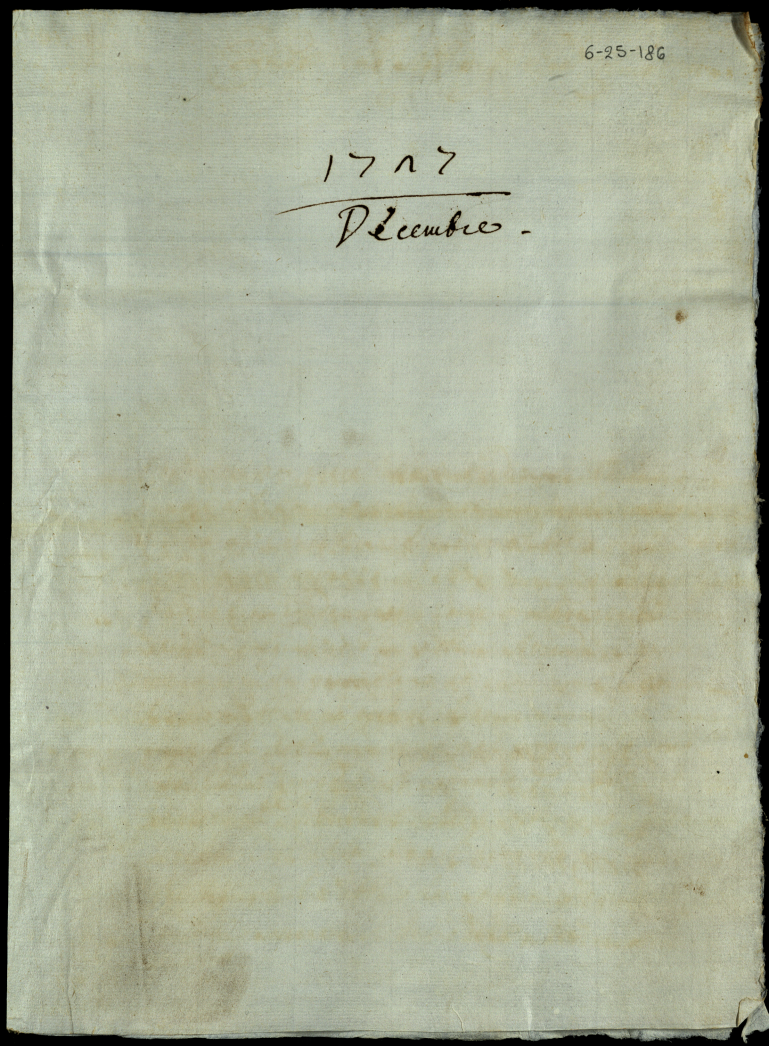 6-25-186
1787
Décembre -